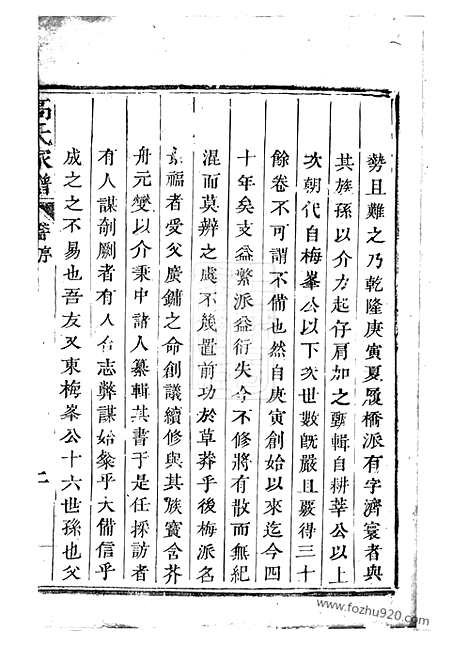 勢且難之乃乾隆庚寅夏履橋派有字濟寰者與
其族孫以介力起仔肩加之甄輯自耕莘公以上
次朝代自梅峯公以下次世數旣嚴且覈得三十
餘卷不可謂不備也然自庚寅創始以來迄今四
十年矣支益繁派益衍失今不修將有散而無紀
混而莫辨之虞不幾置前功於草莽乎後梅派名
福者受父廣鏞之命創議續修與其族賓含芥
舟元燮以介秉中諸人纂輯其書于是任採訪者
有人謀剞劂者有人合志弊謀始粲乎大備信乎
成之之不易也吾友又東梅峯公十六世孫也父
高氏家譜
舊序
二
www.fozhu920.com